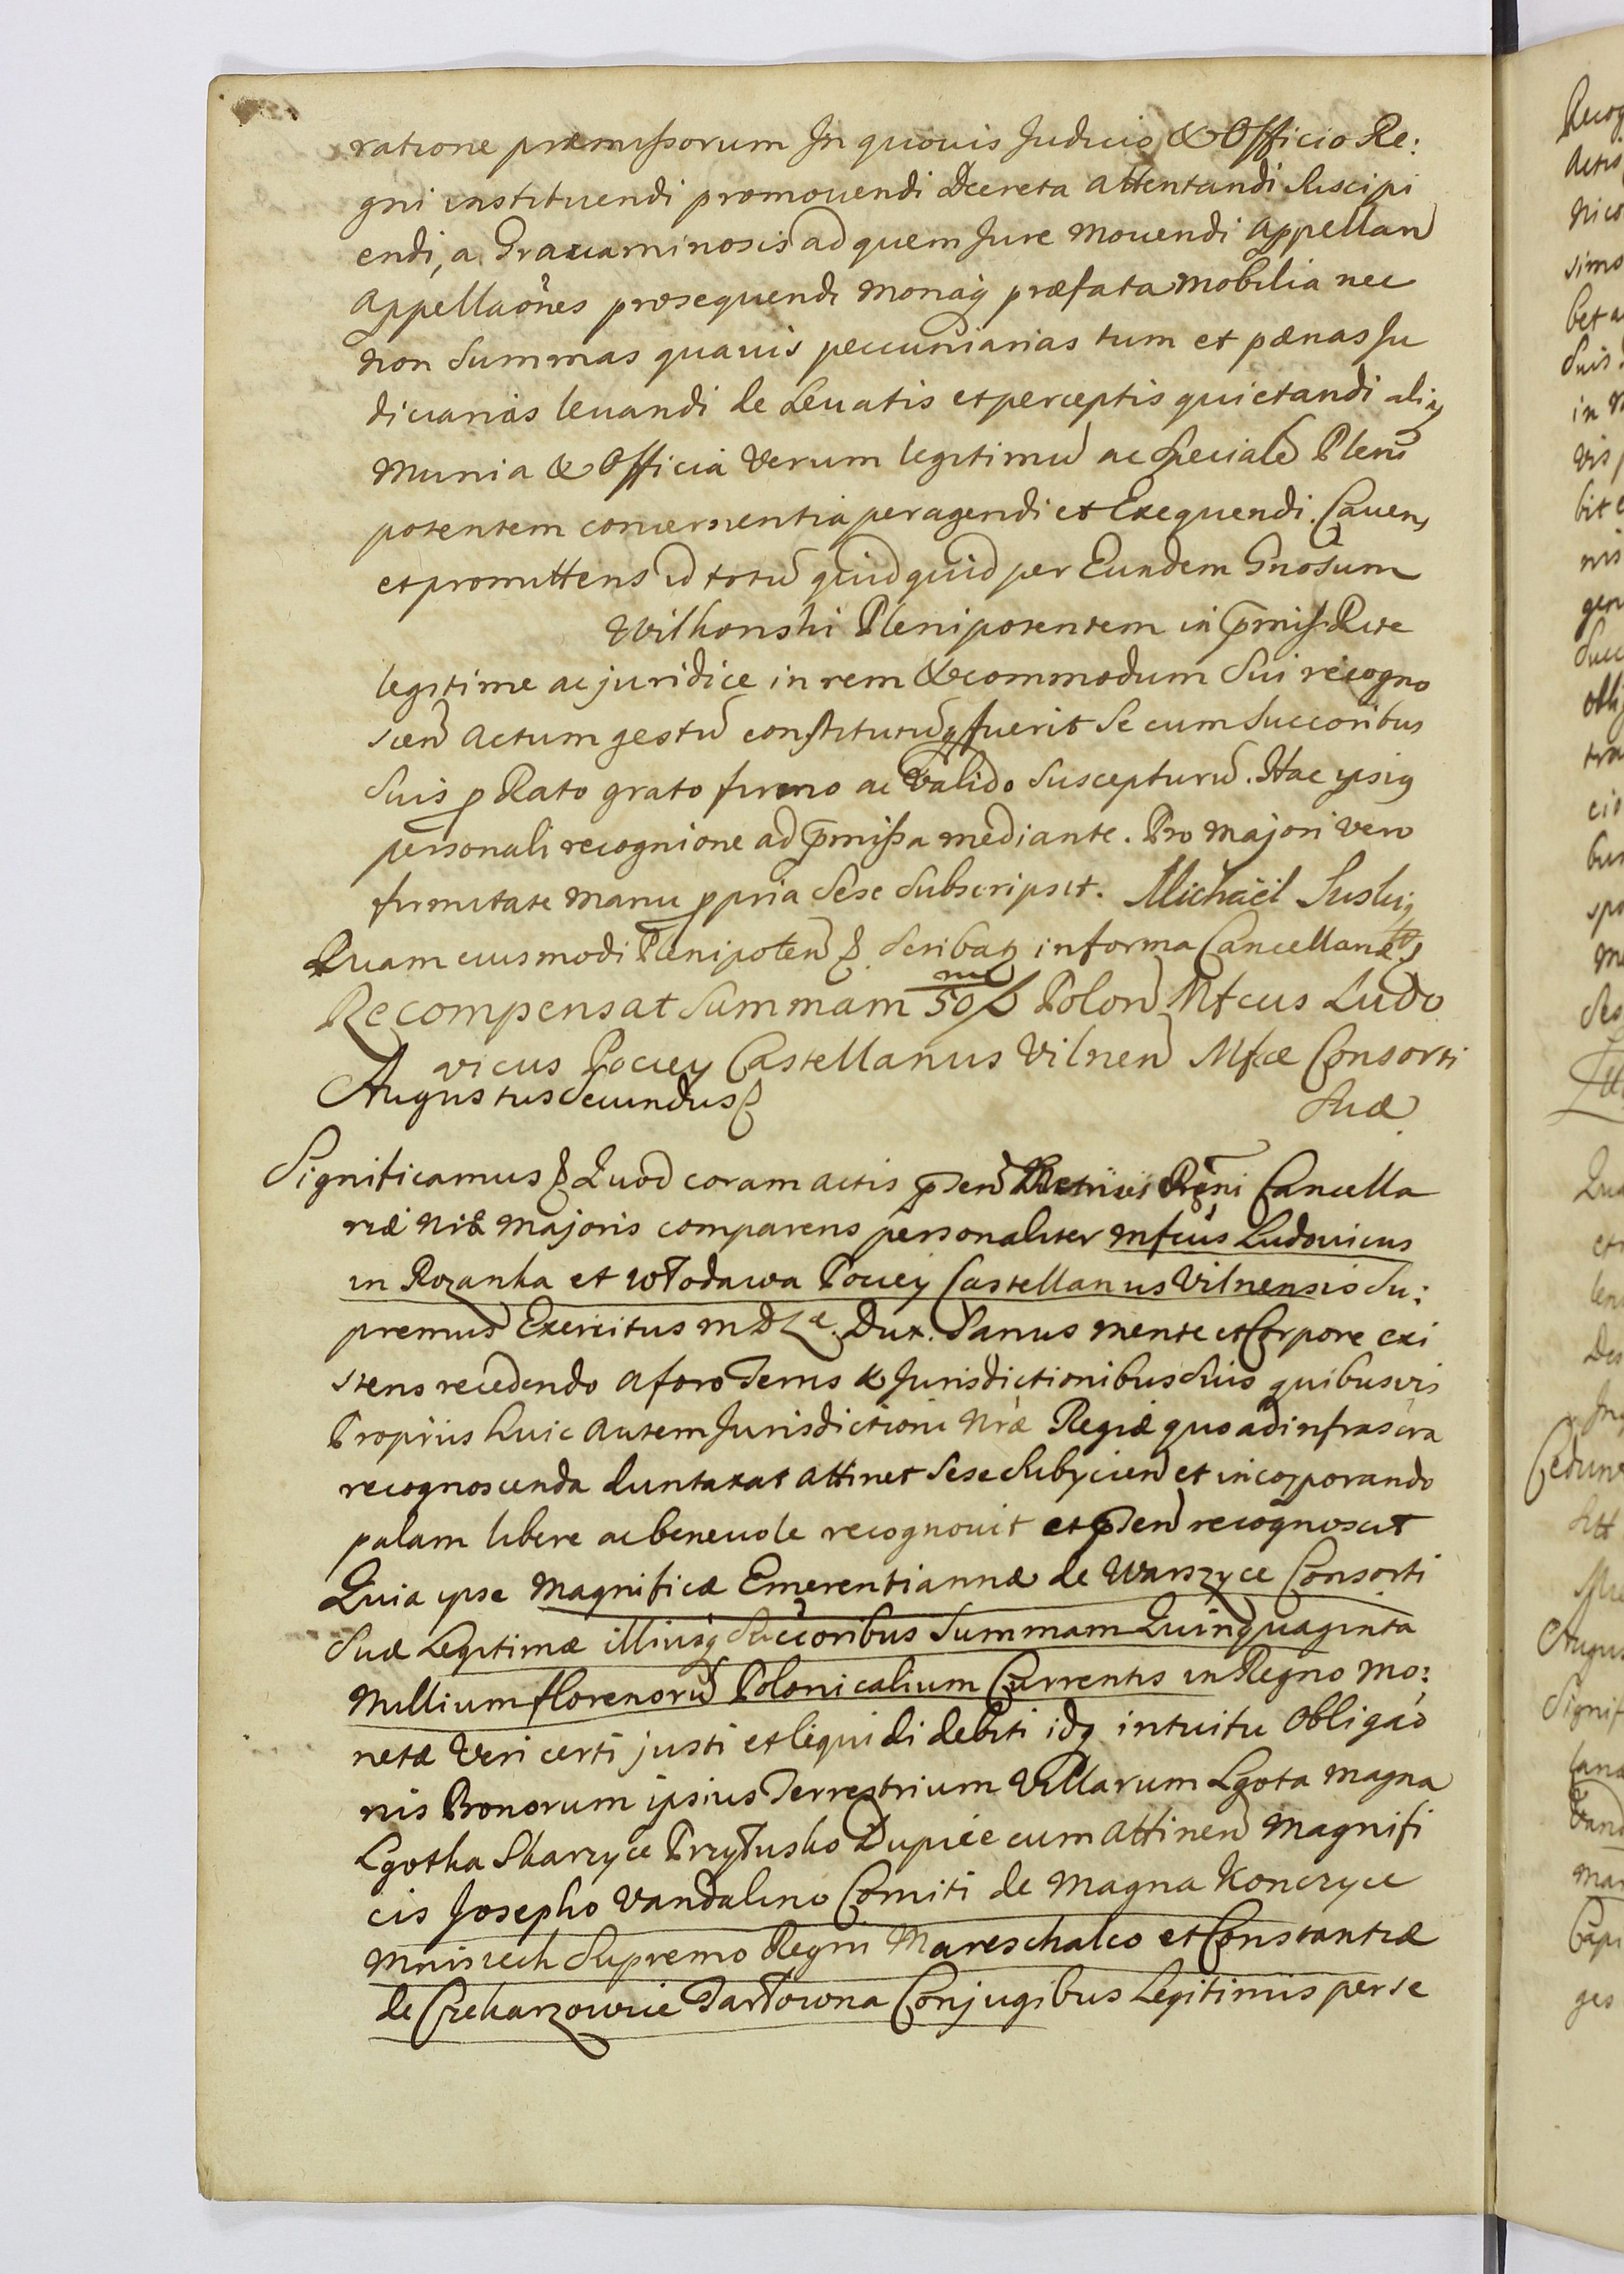 ratione præmissorum In quovis Judicio & Officio Re:
gni instituendi promouendi Decreta attentandi Suscipi
endi, a Gravaminosis ad quem Jure Mouendi Appellan
Appellaões prosequendi Monaq præfata Mobilia nec
non Summas quavis peccuniarias tum et pænas Ju
diciarias levandi de Levatis et perceptis quietandi aliaq
Munia & Officia Verum legitimũ ac Specialẽ Pleni
potentem concernentia peragendi et Exequendi. Cavens
et promittens id totũ quidquid per Eundem Gnosum
Wilkonski Plenipotentem in p̃miss Rite
legitime ac juridice in rem & commodum Sui recogno
scen actum gestũ constitutũq fuerit Se cum Succoribus
Suis p Rato grato firmo ac Valido Suscepturũ. Hac ipsiq
personali recognione ad p̃missa mediante. Pro Majori vero
firmitate Manu ppria Sese Subscripsit. Michaël Suski
Quam eiusmodi Plenipoten Scribaq in forma Cancellan
Recompensat Summam 50/m Polon Mfcus Ludo
vicus Pociey Castellanus Vilnen Mfcæ Consorti
Augustus Secundus Suæ
Significamus Quod coram actis p̃sen Metrices Regni Cancella
riæ Nræ Majoris comparens personaliter Mfcus Ludovicus
in Rozanka et Włodawa Pociey Castellanus Vilnensis Su:
premus Exercitus M D L Dux. Sanus mente et Corpore exi
stens recedendo a foro Terris & Jurisdictionibus Suis quibusvis
Propriis huic autem Jurisdictioni Nræ Regiæ quo ad infrascra
recognoscenda duntaxat attinet Sese Subijcien et incorporando
palam libere ac benevole recognovit et p̃sen recognoscit
Quia ipse Magnificæ Emerentiannæ de Warszyce Consorti
Suæ Legitimæ illiusq Succoribus Summam Quinquaginta
Millium florenorũ Polonicalium Currentis in Regno Mo:
netæ Veri certi justi et liquidi debiti idq intuitu Obligao
nis Bonorum ipsius Terrestrium Villarum Lgota Magna
Lgotka Skarzyce Przyłusko Dupice cum Attinen Magnifi
cis Josepho Vandalino Comiti de Magna Konczyce
Mniszech Supremo Regni Mareschalco et Constantiæ
de Czekarzowie Tarłowna Conjugibus Legitimis per se